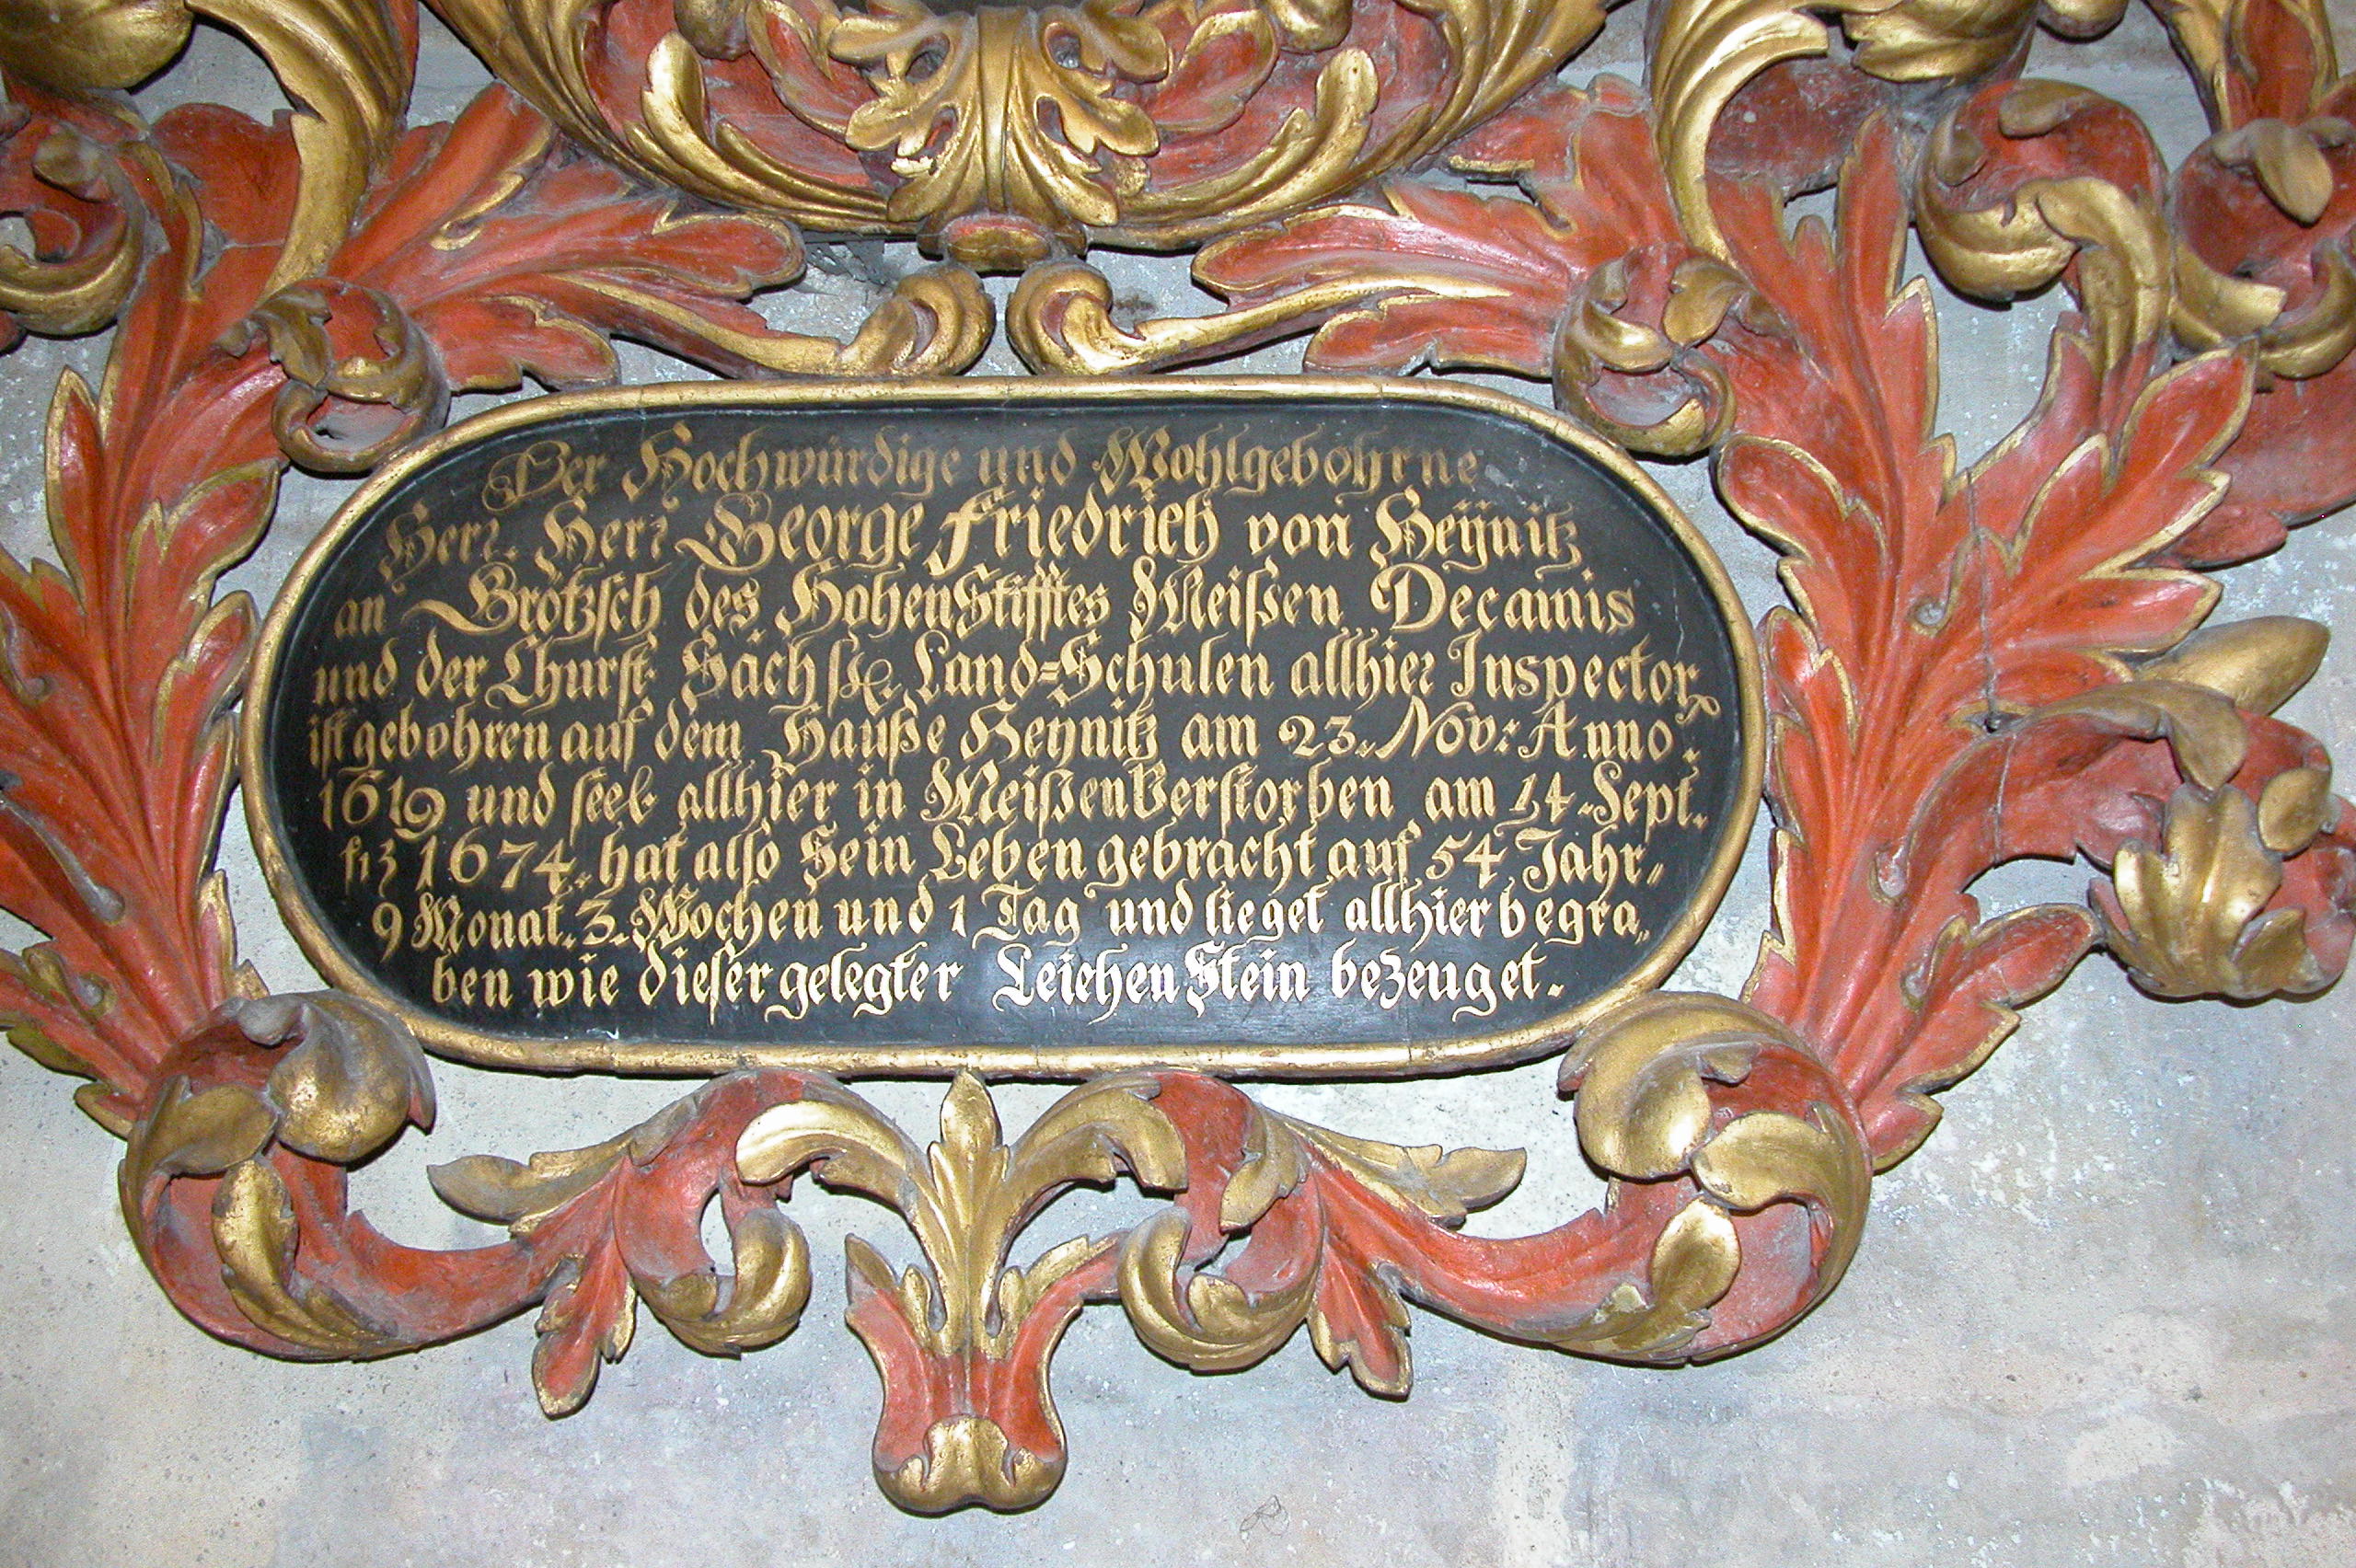 Der Hochwürdige und Wohlgebohrne
Herr. Herr George Friedrich von Heÿnitz
an Brötzsch des HohenStifftes Meißen Decanus
und der Churst. Sächß. Land=Schulen allhier Inspector
ist gebohren auf dem Hauße Heynitz am 23. Nov: Anno.
1619 und seel. allhier in Meißen Verstorben am 14. Sept.
1674. hat also Sein Leben gebracht auf 54 Jahr,,
9 Monat. 3. Wochen und 1 Tag und lieget allhier begra,,
ben wie dieser gelegter Leichen Stein bezeuget.